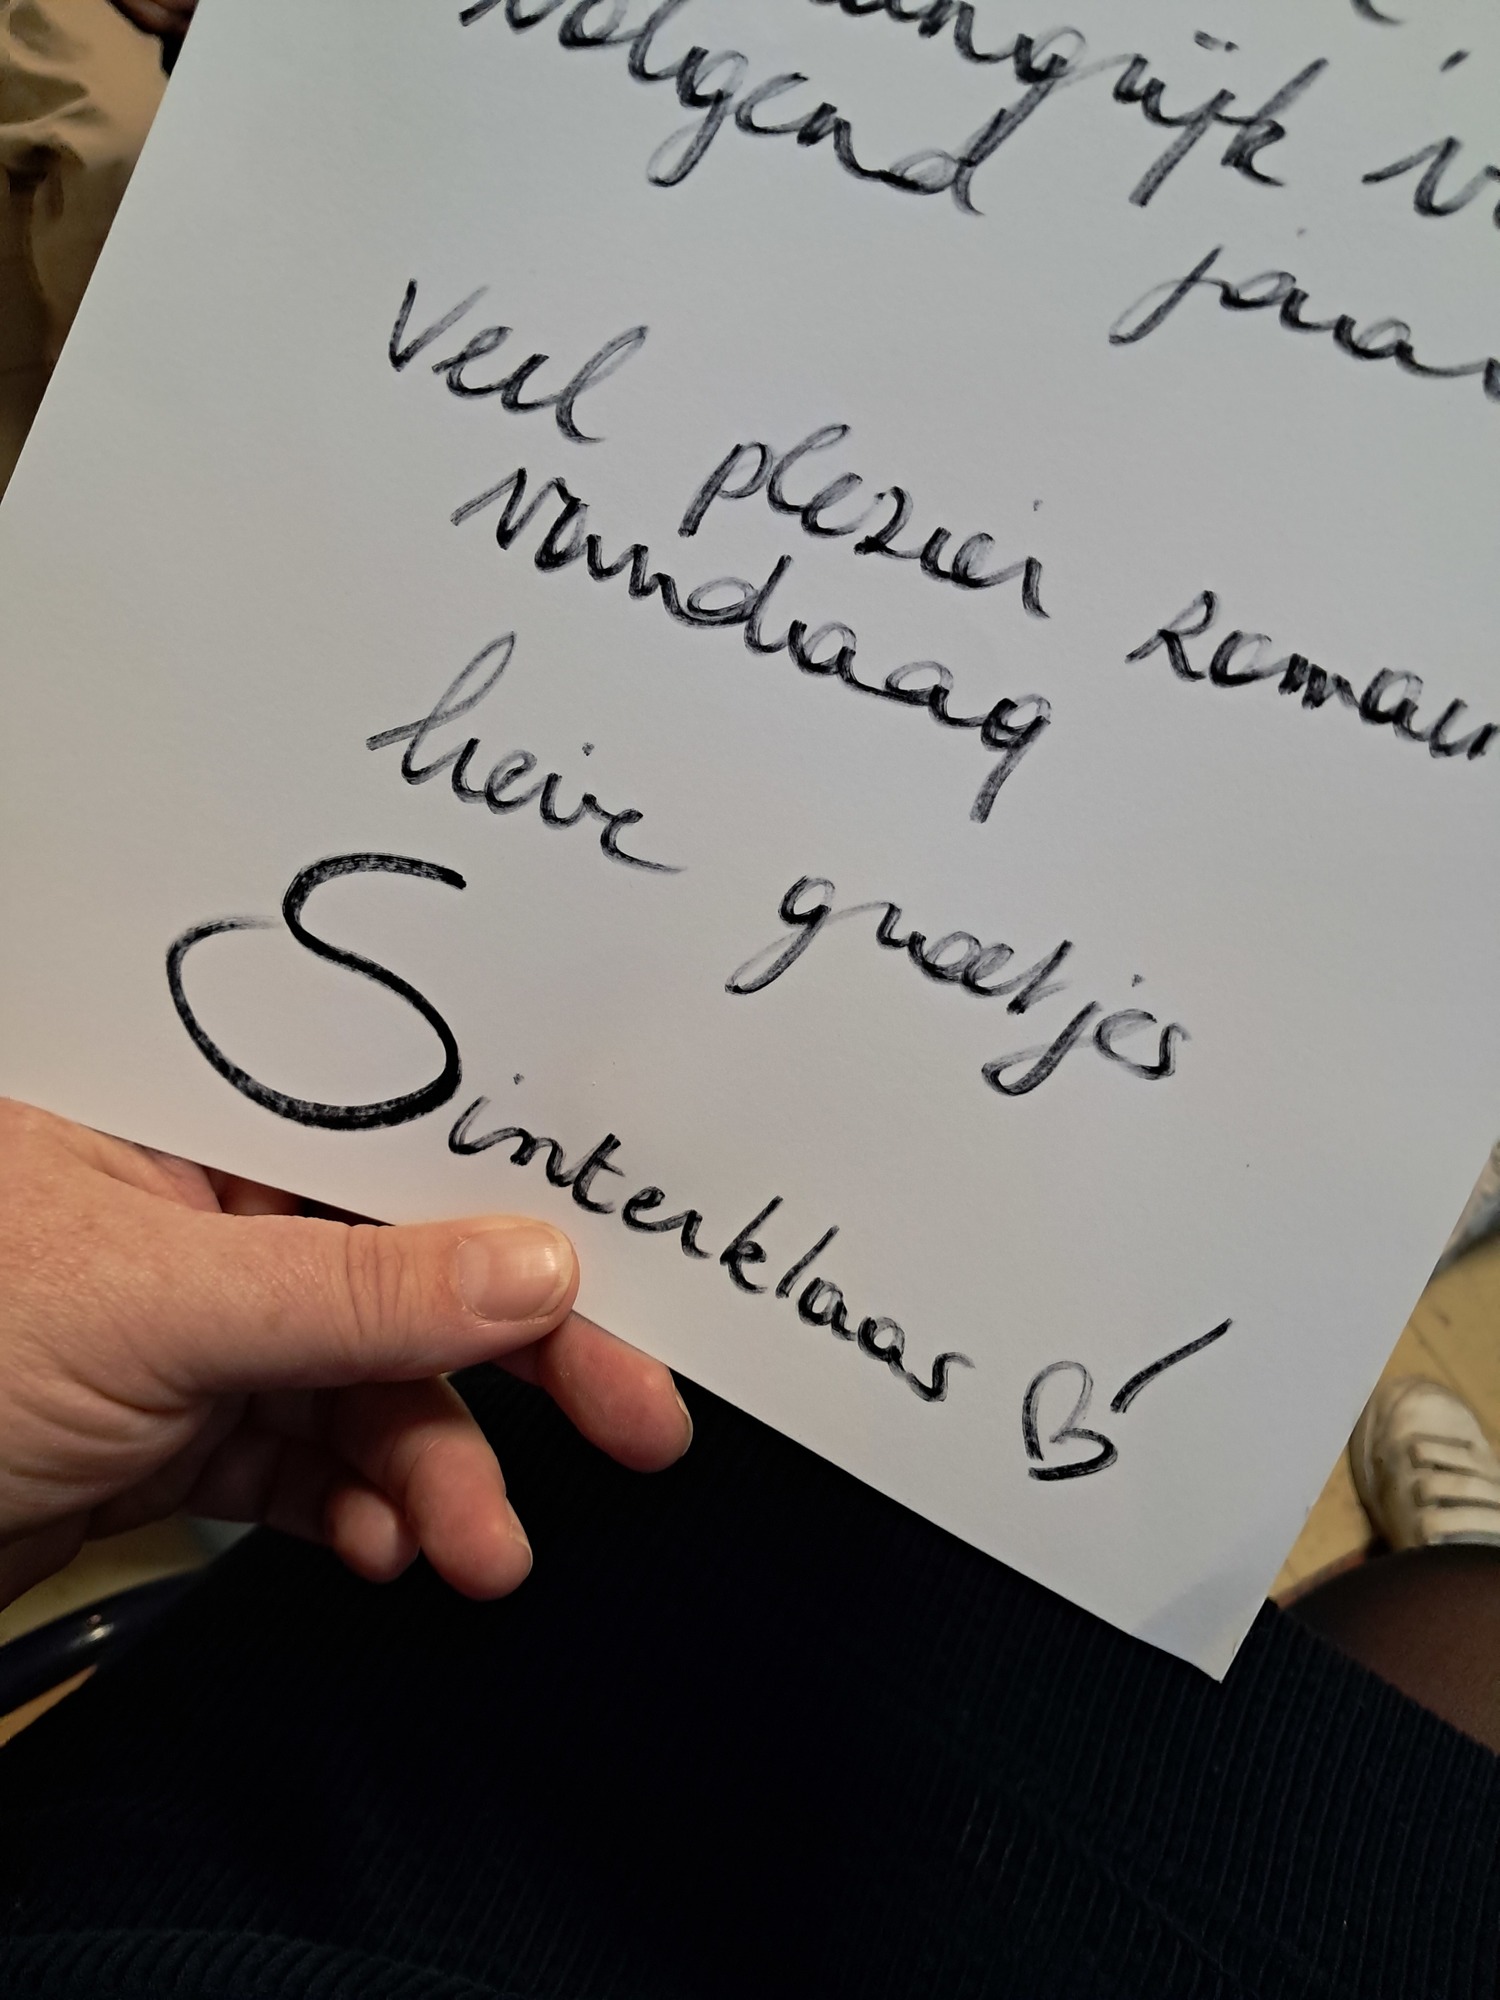 volgend
jaar
Veel plezier Romain
vandaag
lieve groetjes
Sinterklaas